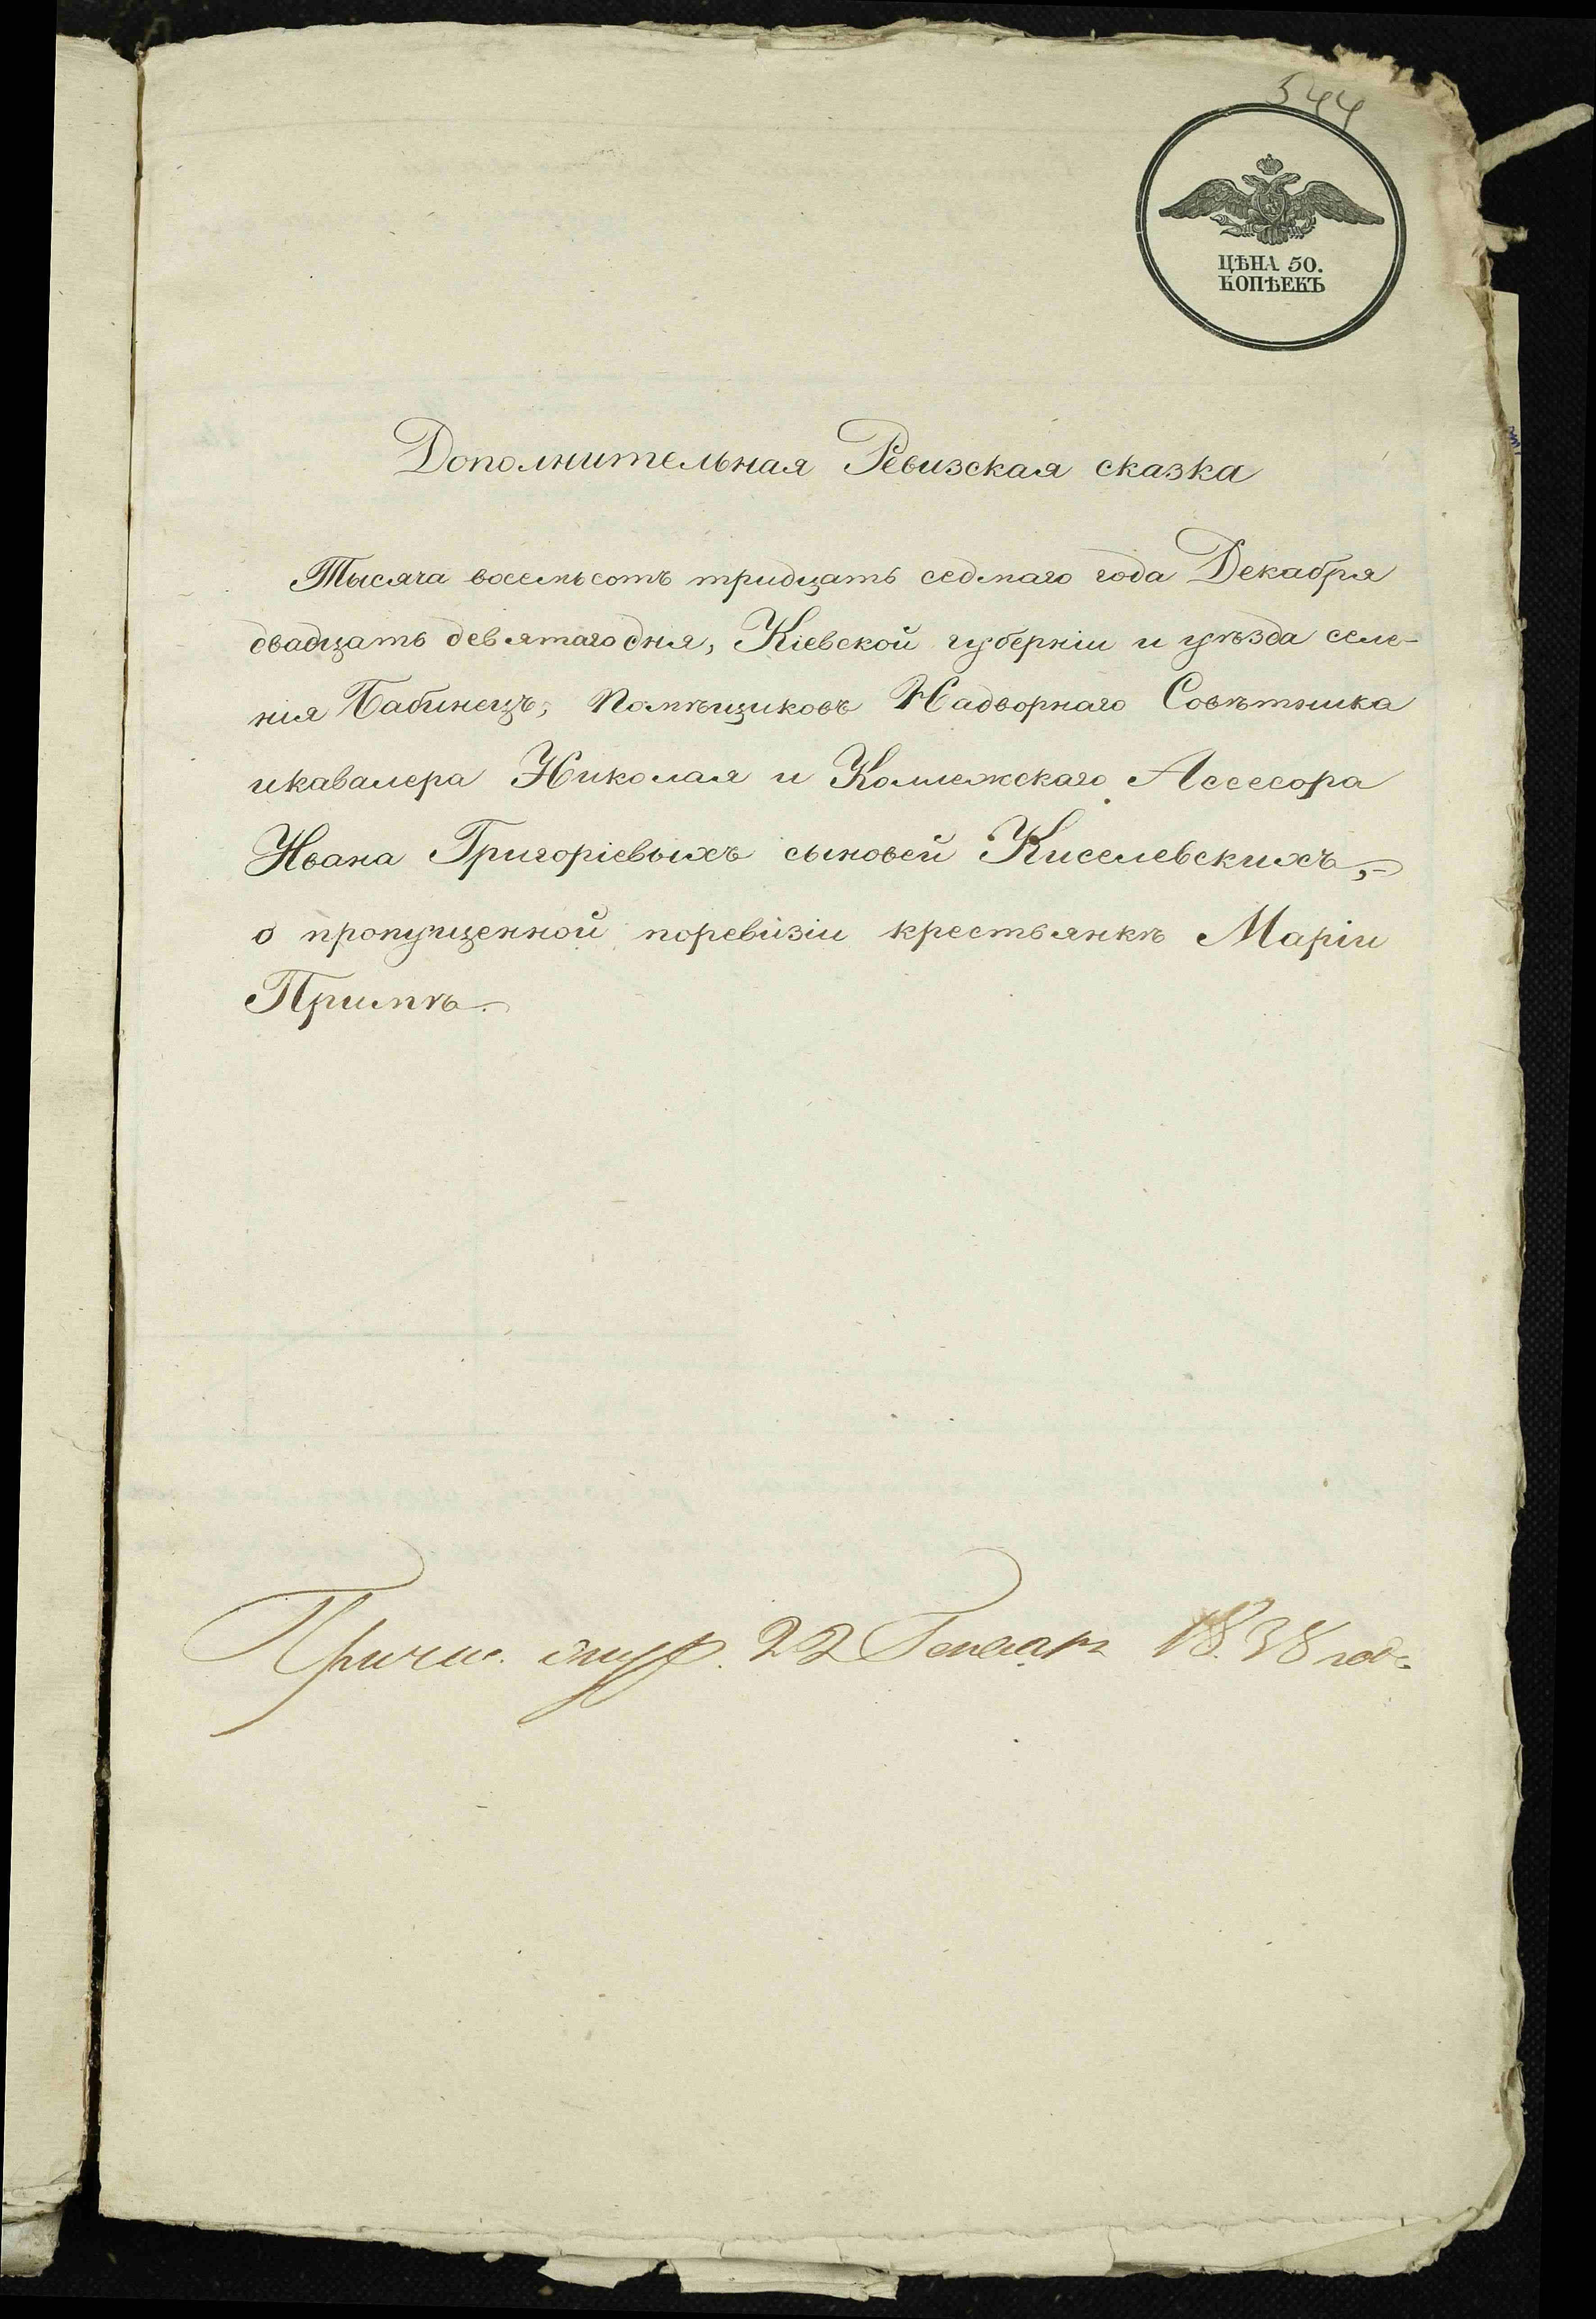 544
ЦѢНА 50.
КОПѢЕКЪ
Дополнительная Ревизская сказка
Тысяча восемьсотъ тридцать седмаго года Декабря
двадцать девятаго дня, Кіевской губерніи и уѣзда селе-
нія Бабинецъ, Помѣщиковъ Надворнаго Совѣтника
и кавалера Николая и Коллежскаго Асессора
Ивана Григоріевыхъ сыновей Киселевскихъ,
о пропущенной поревизіи крестьянкѣ Маріи
Примѣ
22 Генваря 1838 года